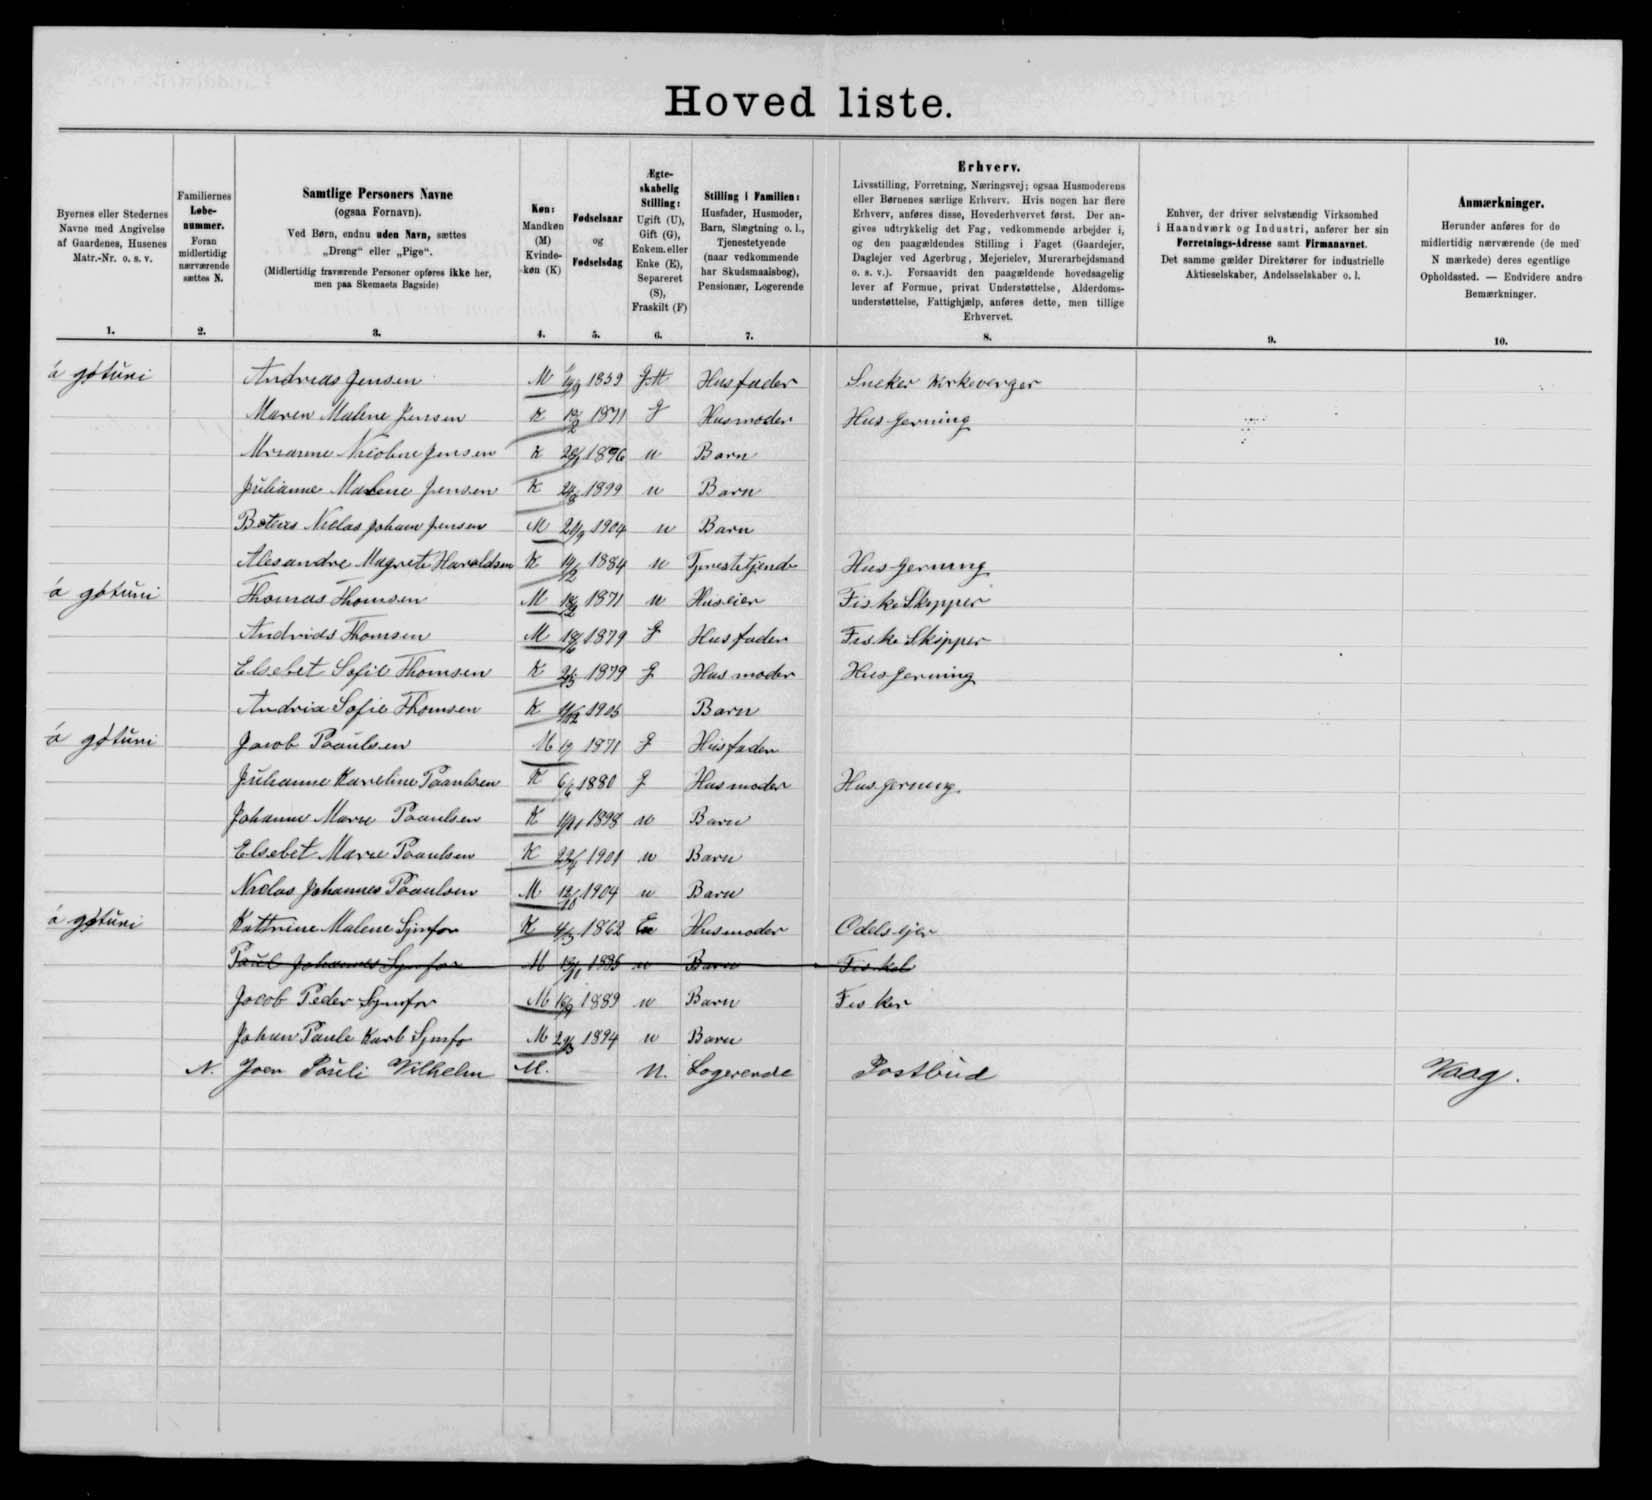 Hoved liste.
Byernes eller Stedernes Navne med Angivelse af Gaardenes, Husenes Matr.-Nr. o. s. v.
Familiernes Løbenummer. Foran midlertidig nærværende sættes N.
Samtlige Personers Navne
(ogsaa Fornavn).
Ved Børn, endnu uden Navn, sættes
„Dreng“ eller „Pige“.
(Midlertidig fraværende Personer opføres ikke her,
men paa Skemaets Bagside)
Køn:
Mandkøn
(M)
Kvinde-
køn (K)
Fødselsaar
og
Fødselsdag
Ægte-
skabelig
Stilling:
Ugift (U),
Gift (G),
Enkem. eller
Enke (E),
Separeret
(S),
Fraskilt (F)
Stilling i Familien:
Husfader, Husmoder,
Barn, Slægtning o. l.,
Tjenestetyende
(naar vedkommende
har Skudsmaalsbog),
Pensionær, Logerende
Erhverv.
Livsstilling, Forretning, Næringsvej; ogsaa Husmoderens
eller Børnenes særlige Erhverv. Hvis nogen har flere
Erhverv, anføres disse, Hovederhvervet først. Der an-
gives udtrykkelig det Fag, vedkommende arbejder i,
og den paagældendes Stilling i Faget (Gaardejer,
Daglejer ved Agerbrug, Mejerielev, Murerarbejdsmand
o. s. v.). Forsaavidt den paagældende hovedsagelig
lever af Formue, privat Understøttelse, Alderdoms-
understøttelse, Fattighjælp, anføres dette, men tillige
Erhvervet.
Enhver, der driver selvstændig Virksomhed
i Haandværk og Industri, anfører her sin
Forretnings-Adresse samt Firmanavnet.
Det samme gælder Direktører for industrielle
Aktieselskaber, Andelsselskaber o. l.
Anmærkninger.
Herunder anføres for de
midlertidig nærværende (de med
N mærkede) deres egentlige
Opholdssted. — Endvidere andre
Bemærkninger.
1. 2. 3. 4. 5. 6. 7. 8. 9. 10.
á gøtuni Andreas Jensen M 1859 Husfader Sneker Kirkeverger
Maren Malene Jensen K 1871 G Husmoder Husgerning
Nicoline Jensen K 1896 u Barn
Julianne Malene Jensen K 1899 u Barn
Niclas Johan Jensen M 21/9 1904 u Barn
Alesandre Magrete Haraldsen K 14/2 1884 u Husgerning
á gøtuni Thomas Thomsen M 18/2 1871 u Huseier Fiske Skipper
Andrias Thomsen M 18/6 1879 G Husfader Fiske Skipper
Elsebet Sofie Thomsen K 1879 G Husmoder Husgerning
Andria Sofie Thomsen K 1905 Barn
á gøtuni Jacob Poaulsen M 1871 G Husfader
Julianne Kareline Poaulsen K 6/6 1880 G Husmoder Husgerning
Johanne Marie Poaulsen K 1898 u Barn
Elsebet Marie Poaulsen K 1901 u Barn
Niclas Johannes Poaulsen M 12/10 1904 u Barn
á gøtuni Kattrine Malene Sjmfor K 4/3 1862 En Husmoder Odelsejer
Poul Johannes Sjmfor M 13/1 1885 u Barn
Jacob Peder Sjmfor M 1889 u Barn Fisker
Johan Paule Karb Sjmfo M 1894 u Barn
N. Joen Pauli Vilhelm M. U. Logerende Postbud Vaag.